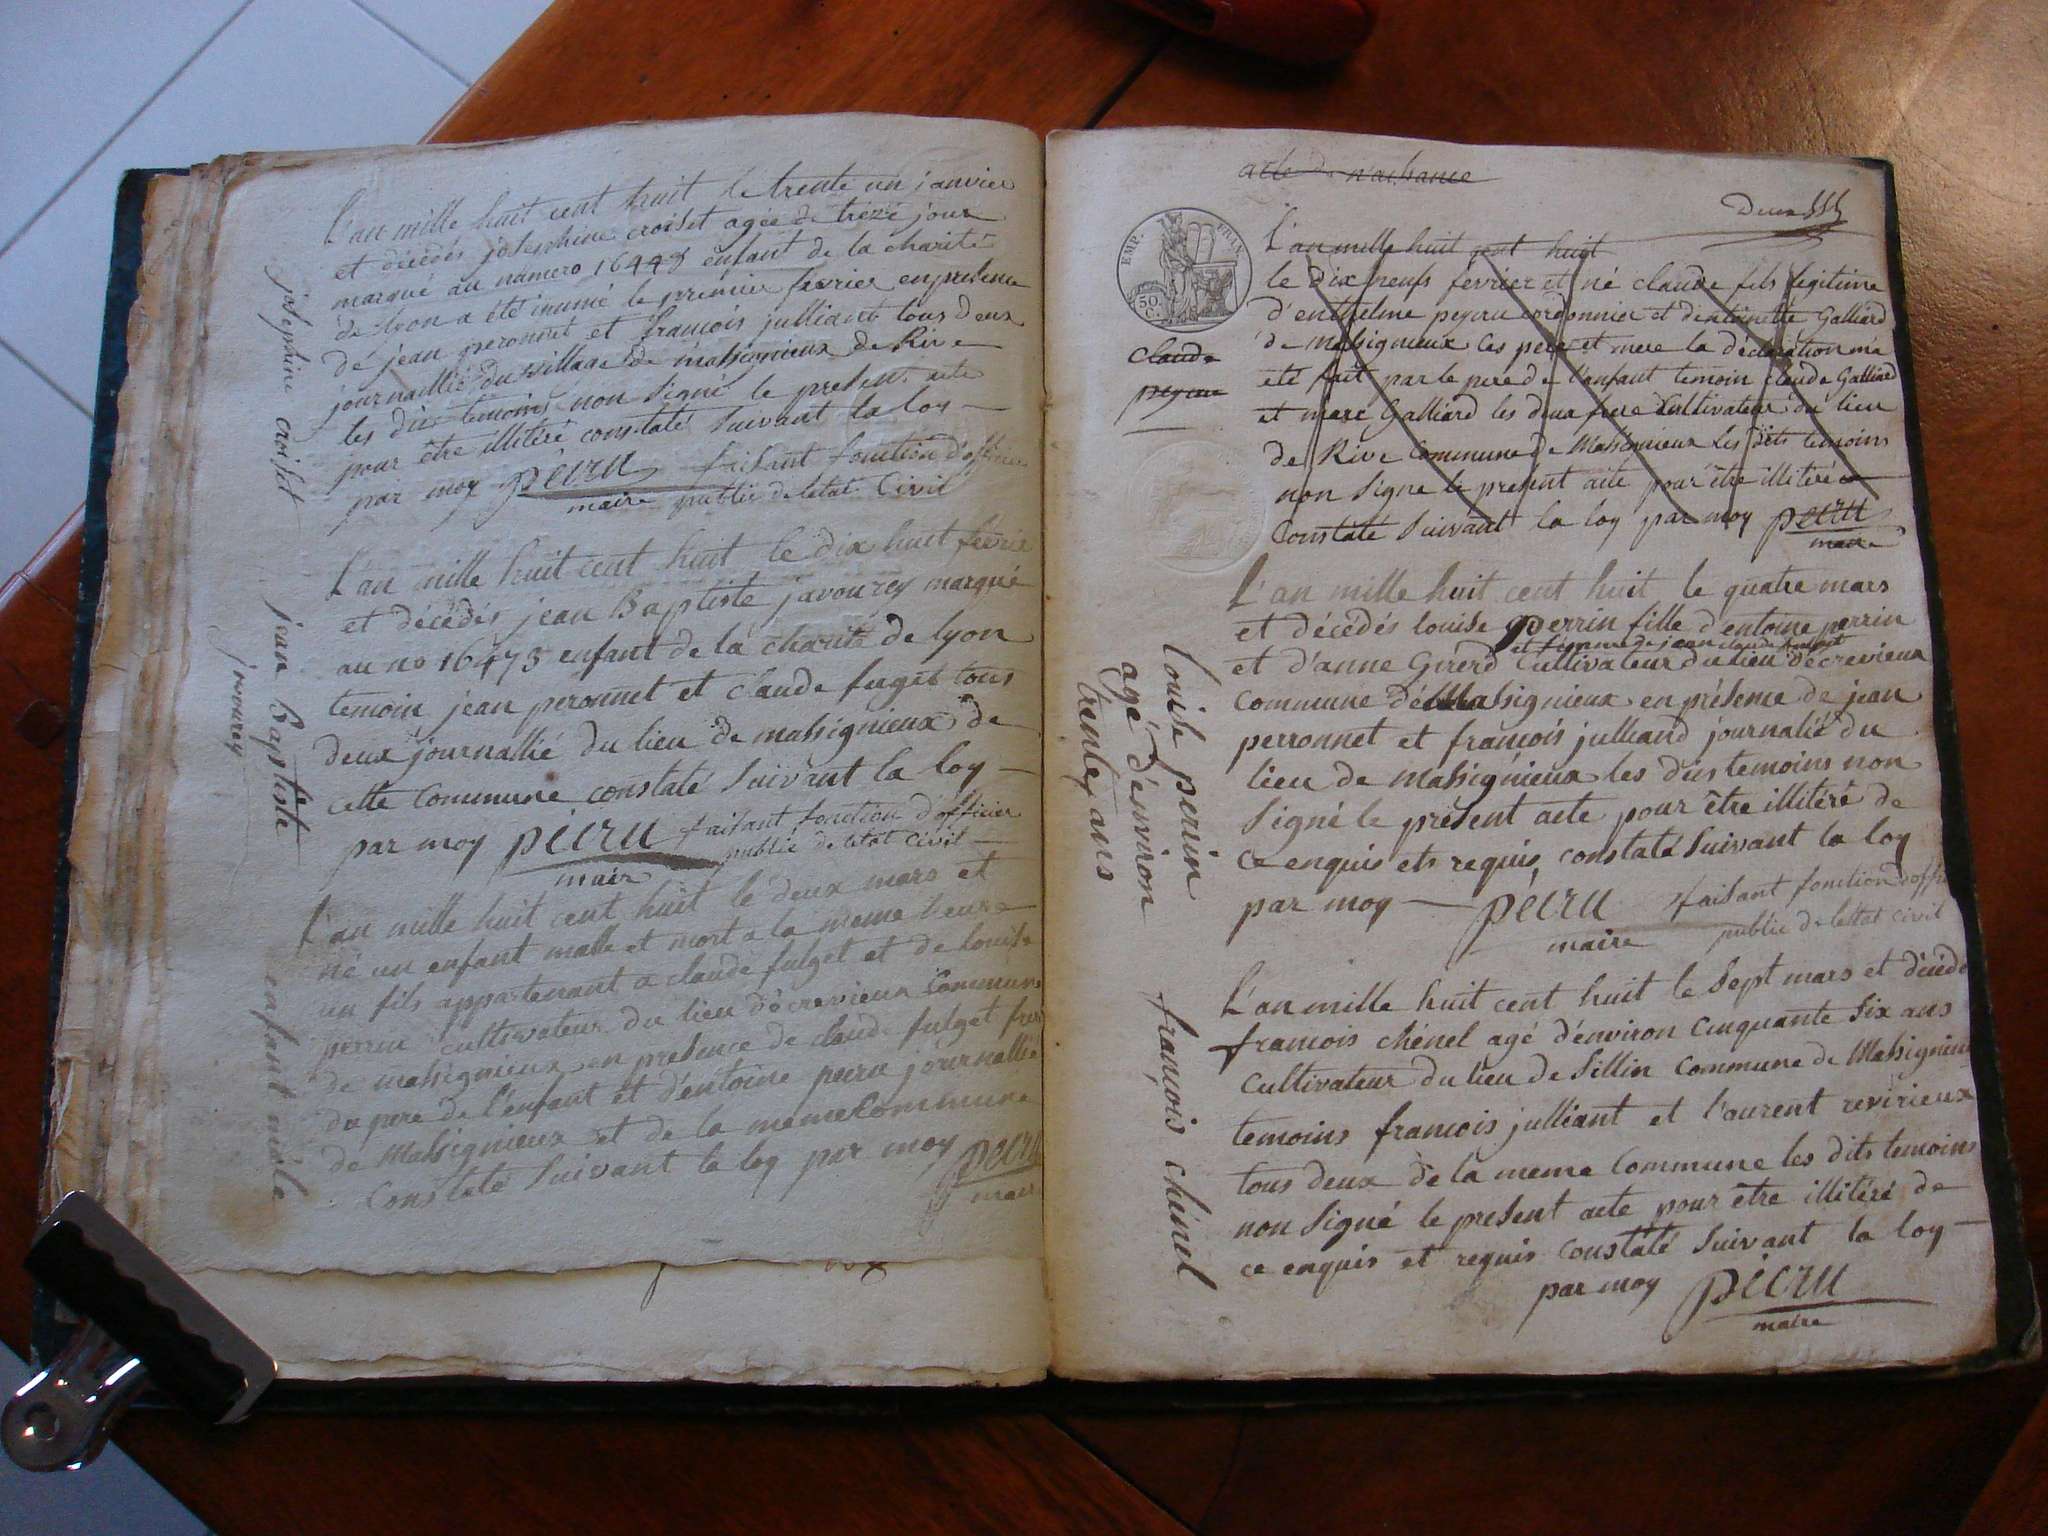 L'an mille huit cent huit le trente un janvier
et décédés josephine croiset agée de treze jour
marqué au numero 16448 enfant de la charité
de lyon a été inumé le premier fevrier en presence
de jean peronnet et francois julliant tous deux
journallié du village de massignieux de Rive
les dits temoins non signé le present acte
pour être illitéré constaté suivant la loy
par moy pécru faisant fonction d'officier
maire public de letat Civil
josephine croisset
L'an mille huit cent huit le dix huit fevrié
et décédés jean Baptiste javourey marqué
au no 16473 enfant de la charité de lyon
temoin jean peronnet et claude fuget tous
deux journallié du lieu de massignieux de
cette Commune constaté suivant la loy
par moy pécru faisant fonction d'officier
maire public de letat civil
jean Baptiste
javourey
L'an mille huit cent huit le deux mars et
né un enfant malle et mort a la meme heure
un fils appartenant a claude fulget et de louise
perrin cultivateur du lieu décrevieux Commune
de massignieux en presence de claude fulget frere
du pere de l'enfant et d'entoine pecru journallié
de Massignieux et de la meme Commune
Constaté suivant la loy par moy pecru
maire
enfant mâle
acte de naissance
Deux
EMP. FRAN.
50 C.
L'an mille huit cent huit
le dix neufs fevrier et né claude fils legitime
d'enthelme peycru cordonnier et dentoinette Galliard
de massignieux Ces pere et mere la déclaration ma
eté fait par le pere de l'enfant temoin claude Galliard
et marc Galliard les deux frere Cultivateur du lieu
de Rive Commune de Massignieux Les dits temoins
non signe le présent acte pour être illitéré
Constaté suivant la loy par moy pecru
maire
claude
peycru
L'an mille huit cent huit le quatre mars
et décédés louise perrin fille d'entoine perrin
et femme de jean claude
et d'anne Girerd Cultivateur du lieu décrevieux
Commune de Massignieux en présence de jean
perronnet et francois julliand journalié du
lieu de massignieux les dits temoins non
signé le présent acte pour être illitéré de
ce enquis ets requis, constaté suivant la loy
par moy pécru faisant fonction d'offi
maire public de lettat civil
louise perrin
agé d'environ
trente ans
L'an mille huit cent huit le sept mars et décédé
francois chénel agé d'environ Cinquante six ans
Cultivateur du lieu de sillin Commune de Massignieu
temoins francois julliant et l'aurent revirieux
tous deux de la meme Commune les dits temoins
non signé le present acte pour être illitéré de
ce enquis et requis constaté suivant la loy
par moy pécru
maire
françois chénel